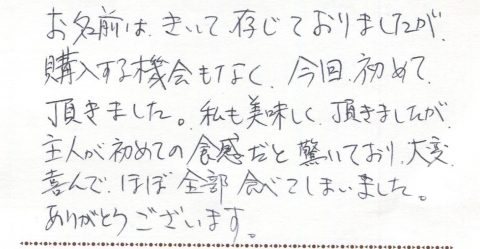 お名前は、きいて存じておりましたが、
購入する機会もなく、今回、初めて
頂きました。私も美味しく、頂きましたが、
主人が初めての食感だと驚いており、大変
喜んで、ほぼ全部食べてしまいました。
ありがとうございます。